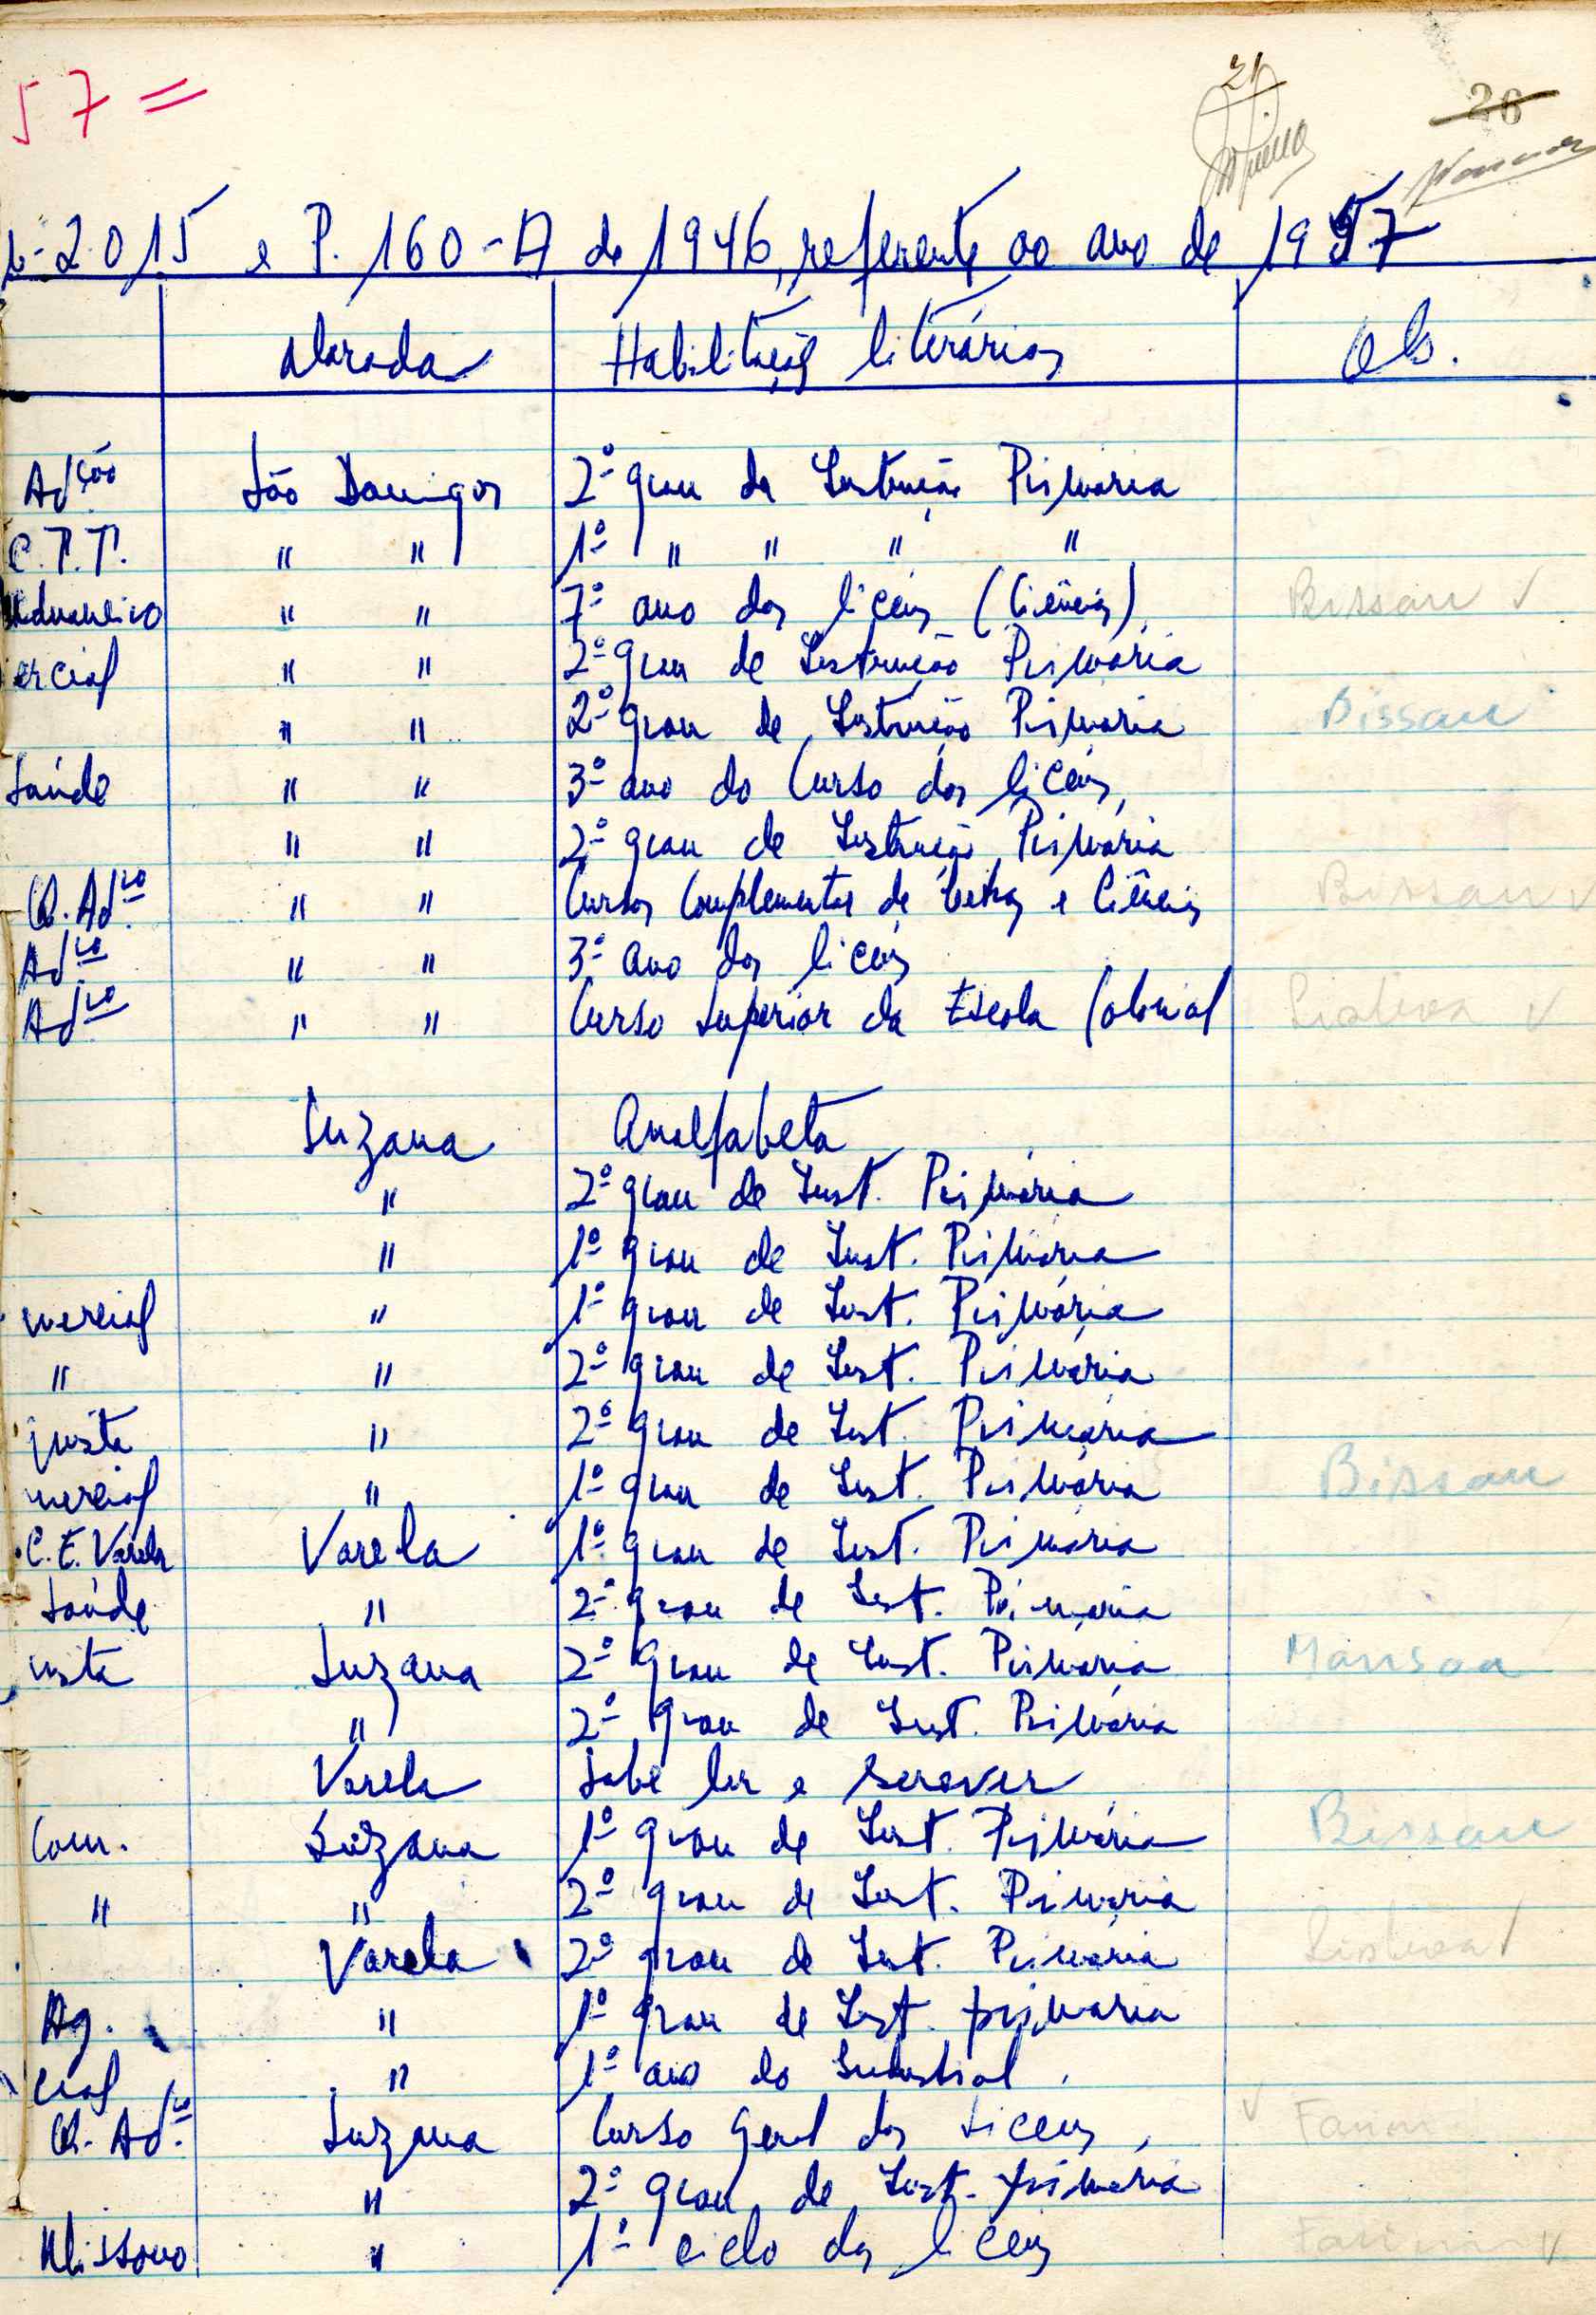 57 =
21
26
2.015 e P. 160-A de 1946, referente ao ano de 1957
Morada Habilitações literárias Obs.
Adção São Domingos 2º grau da Instrução Primária
C.T.T. " " 1º " " " "
Aduaneiro " " 7º ano dos liceus (Ciências) Bissau ✓
ercial " " 2º grau de Instrução Primária
" " 2º grau de Instrução Primária Bissau
Saúde " " 3º ano do Curso dos liceus,
" " 2º grau de Instrução Primária
Q. Adº " " Cursos Complementar de Letras e Ciências Bissau ✓
Adº " " 3º ano dos liceus
Adº " " Curso Superior da Escola Colonial Lisboa ✓
Suzana Analfabeta
" 2º grau de Inst. Primária
" 1º grau de Inst. Primária
mercial " 1º grau de Inst. Primária
" " 2º grau de Inst. Primária
" 2º grau de Inst. Primária
mercial " 1º grau de Inst. Primária Bissau
C.E. Varela Varela 1º grau de Inst. Primária
Saúde " 2º grau de Inst. Primária
ista Suzana 2º grau de Inst. Primária Mansoa
" 2º grau de Inst. Primária
Varela Sabe ler e escrever
Com. Suzana 1º grau de Inst. Primária Bissau
" " 2º grau de Inst. Primária
Varela 2º grau de Inst. Primária Lisboa /
Ag. " 1º grau de Inst. primária
cial " 1º ano do Industrial.
Q. Adº Suzana Curso Geral dos Liceus, ✓ Farim
" 2º grau de Inst. primária
Missono " 1º ciclo dos liceus Farim ✓